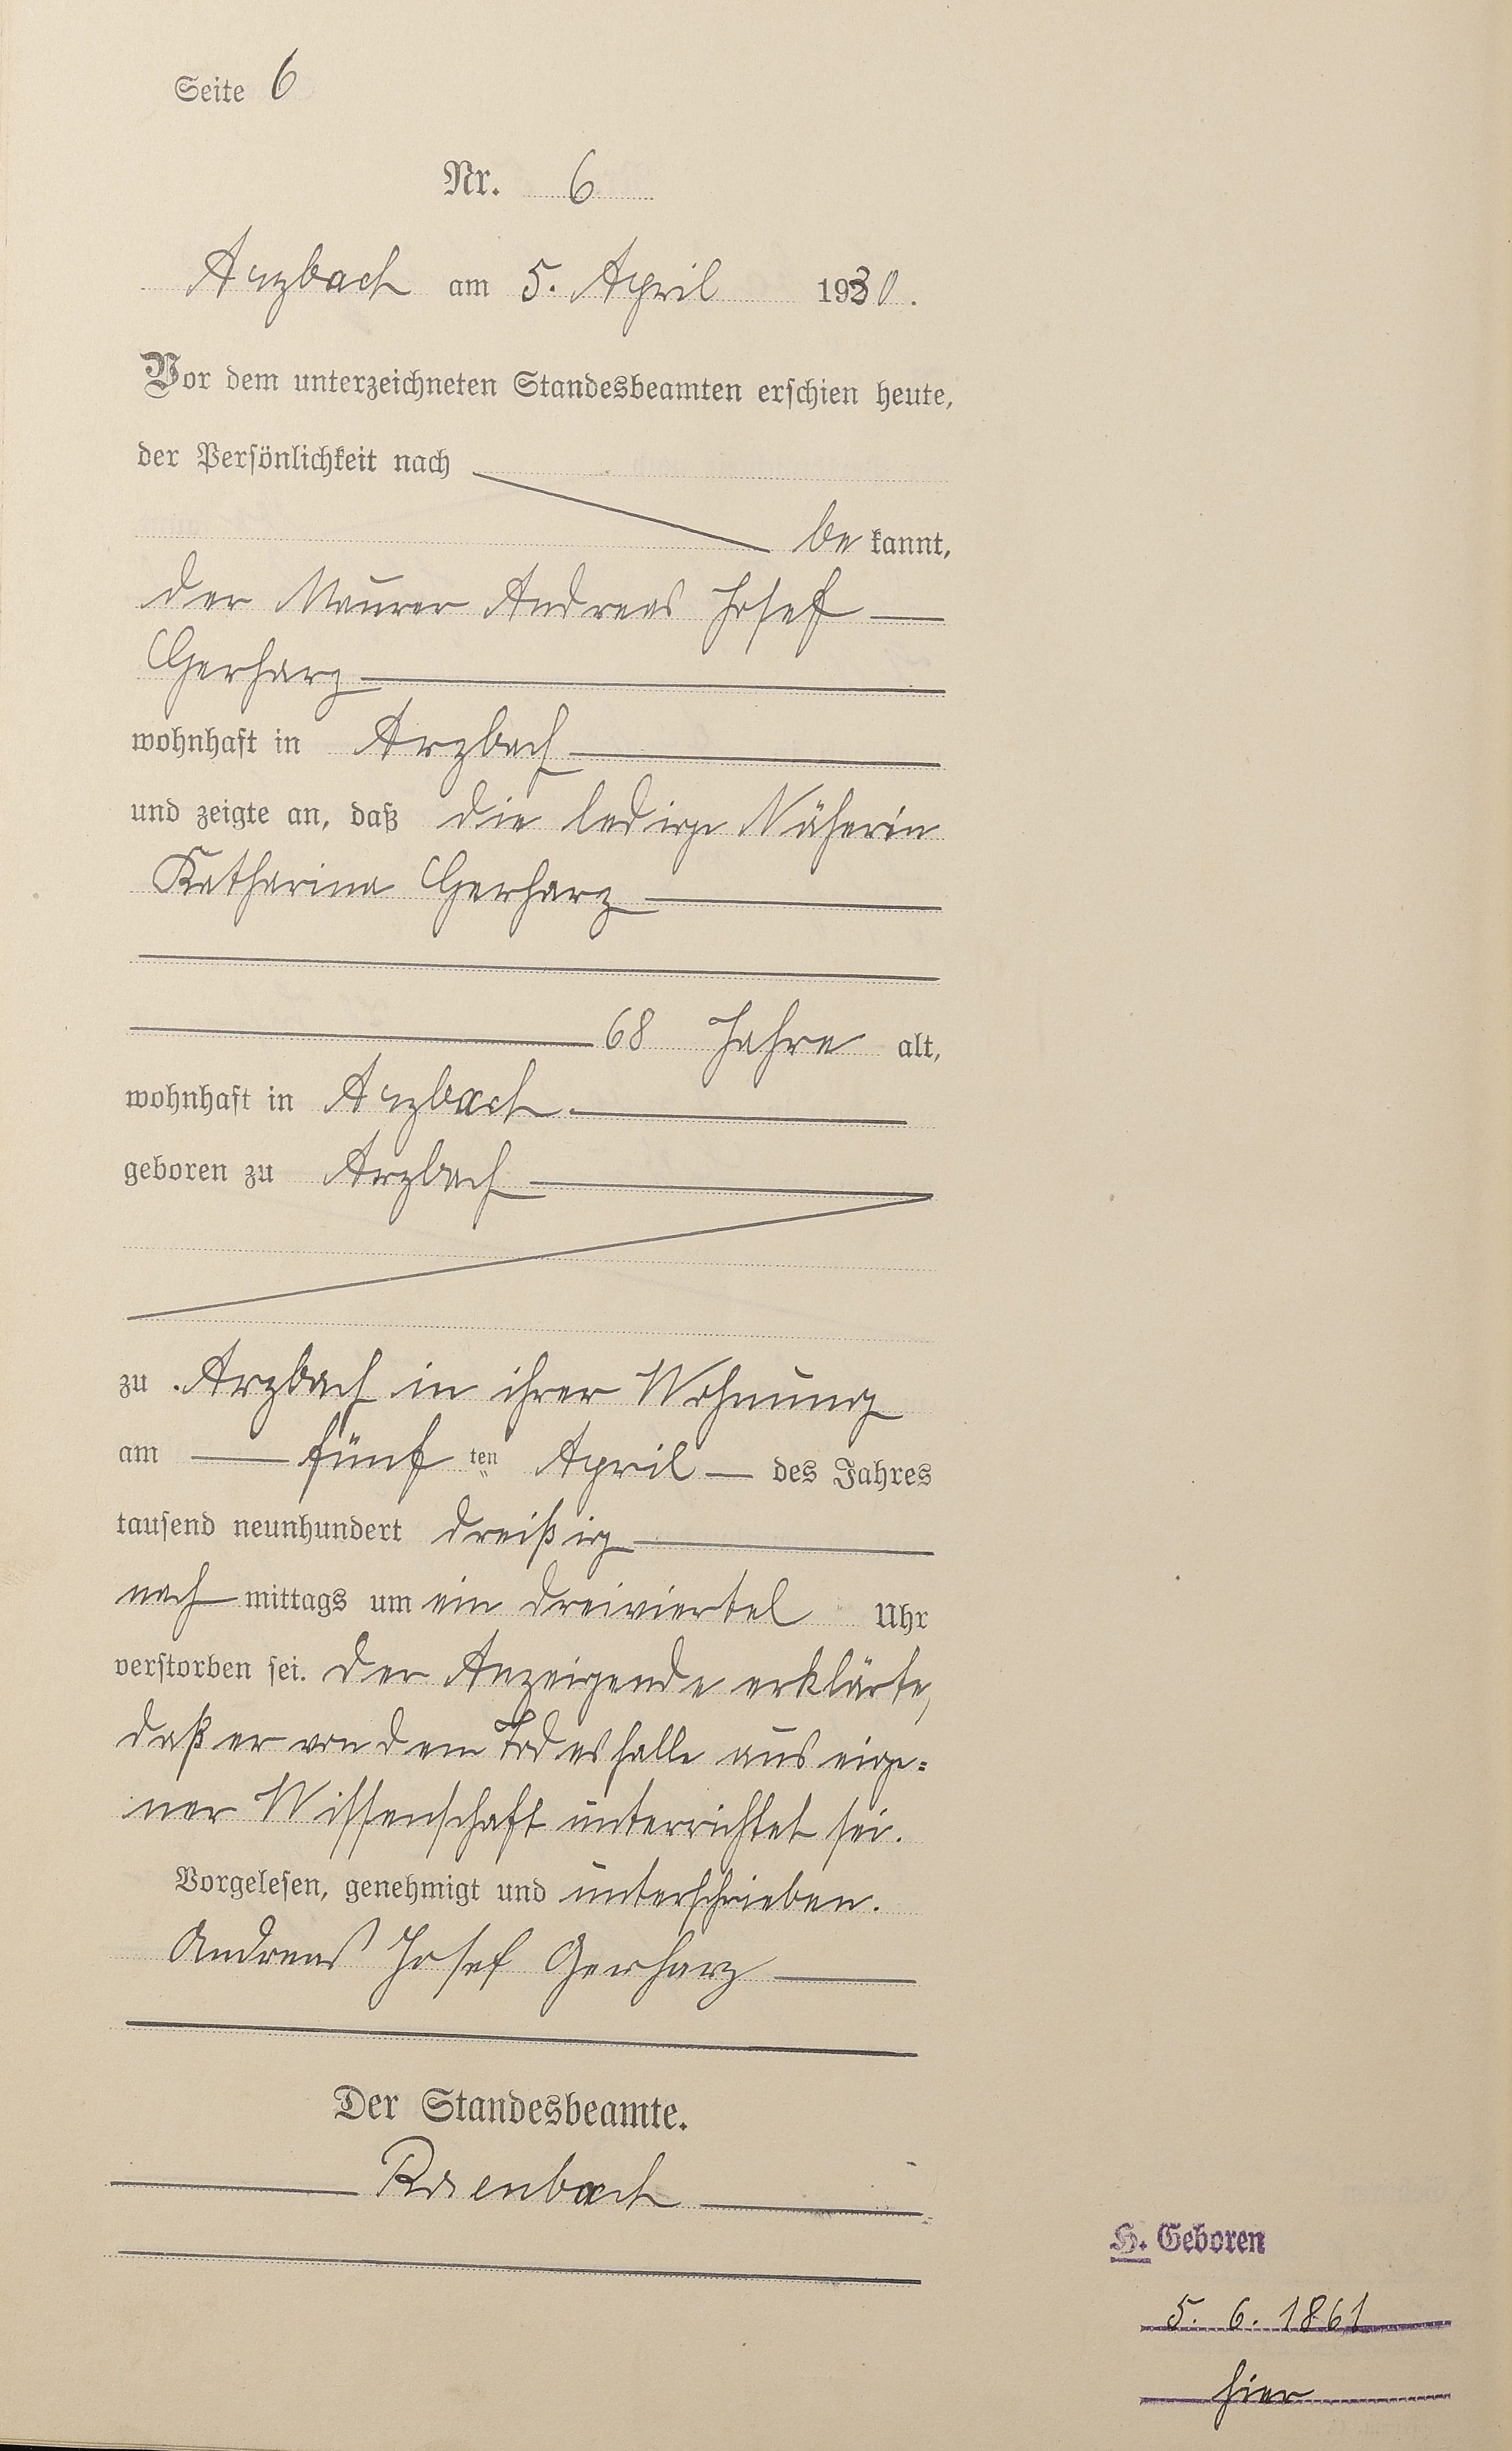 Seite 6
Nr. 6
Arzbach am 5. April 1930.
Vor dem unterzeichneten Standesbeamten erschien heute,
der Persönlichkeit nach
be kannt,
der Maurer Andreas Josef
Gerharz
wohnhaft in Arzbach
und zeigte an, daß die ledige Näherin
Katharina Gerharz
68 Jahre alt,
wohnhaft in Arzbach
geboren zu Arzbach
zu Arzbach in ihrer Wohnung
am fünf ten April des Jahres
tausend neunhundert dreißig
nach mittags um ein dreiviertel Uhr
verstorben sei. Der Anzeigende erklärte,
daß er von dem Todesfalle aus eige=
ner Wissenschaft unterrichtet sei.
Vorgelesen, genehmigt und unterschrieben.
Andreas Josef Gerharz
Der Standesbeamte.
H. Geboren
5. 6. 1861
hier